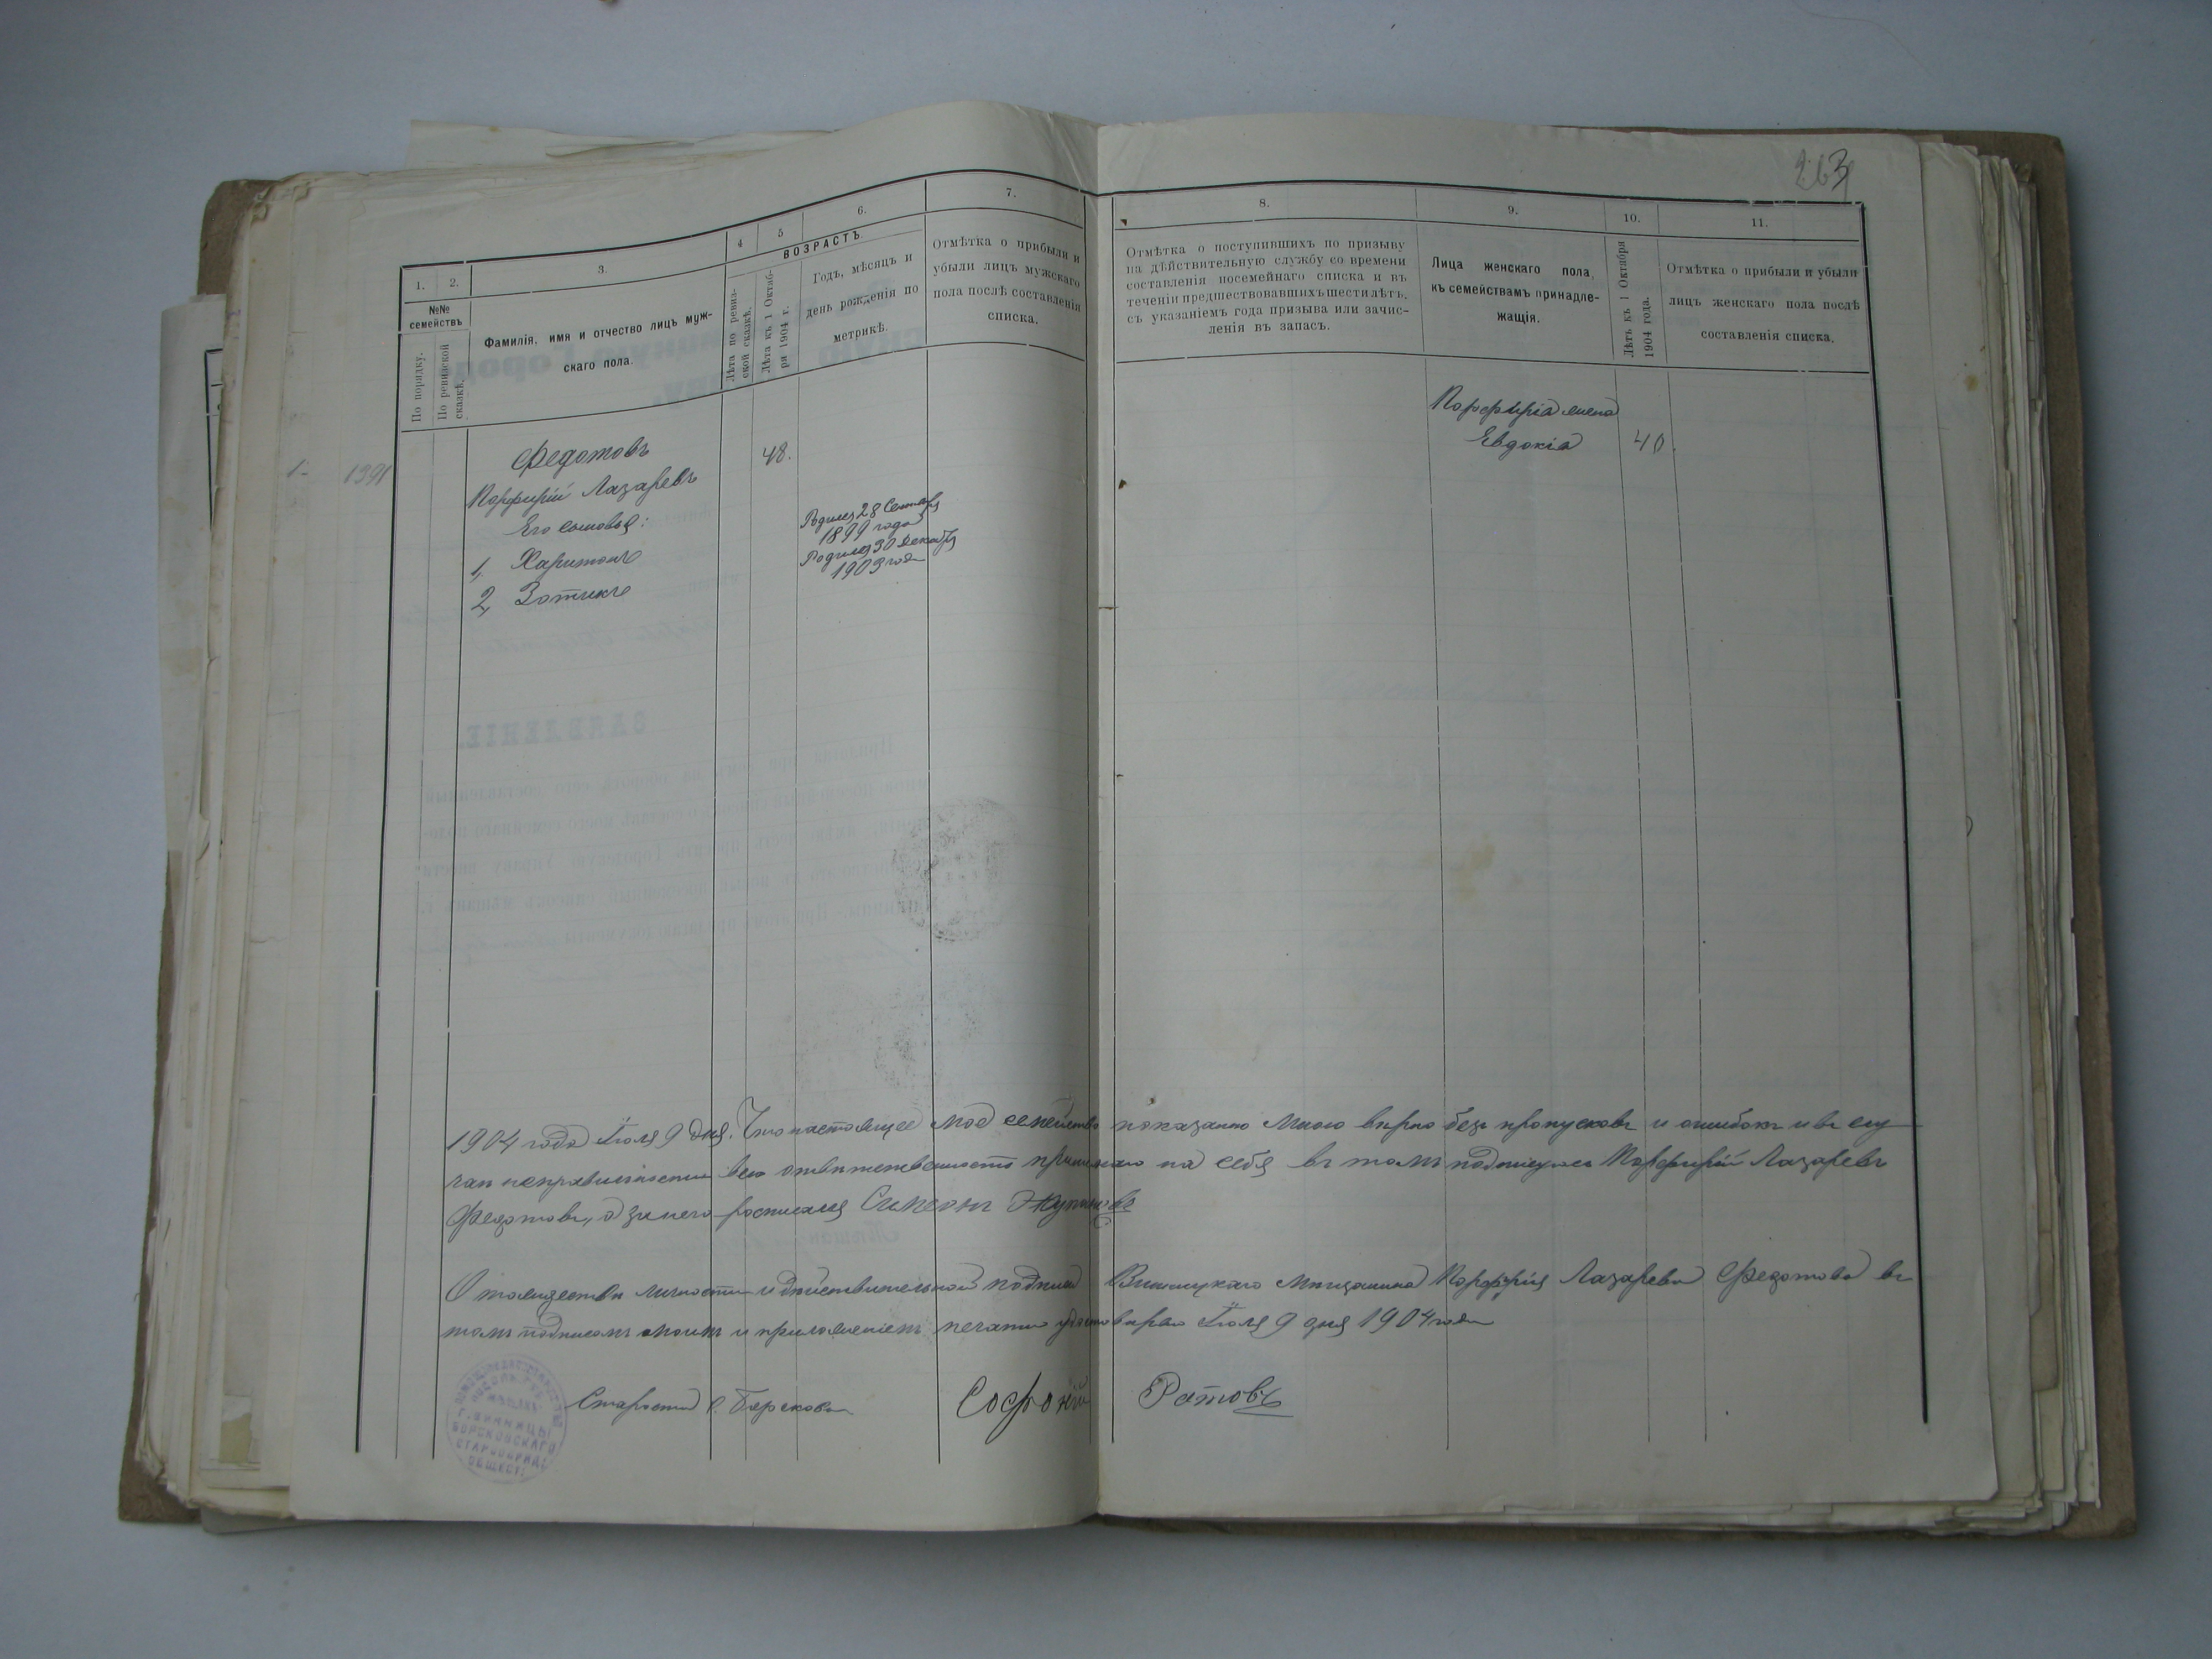 263
1.
2.
3.
4
5
6.
7.
8.
9.
10.
11.
№№ семействъ
По порядку.
По ревизской сказкѣ.
Фамилія, имя и отчество лицъ муж-
скаго пола.
ВОЗРАСТЪ.
Лѣта по ревиз-
ской сказкѣ.
Лѣта къ 1 Октяб-
ря 1904 г.
Годъ, мѣсяцъ и
день рожденія по
метрикѣ.
Отмѣтка о прибыли и
убыли лицъ мужскаго
пола послѣ составленія
списка.
Отмѣтка о поступившихъ по призыву
на дѣйствительную службу со времени
составленія посемейнаго списка и въ
теченіи предшествовавшихъ шести лѣтъ,
съ указаніемъ года призыва или зачис-
ленія въ запасъ.
Лица женскаго пола,
къ семействамъ принадле-
жащія.
Лѣтъ къ 1 Октября
1904 года.
Отмѣтка о прибыли и убыли
лицъ женскаго пола послѣ
составленія списка.
1- 1391
Федотовъ
48.
Порфирій Лазаревъ
Его сыновья:
1, Харитонъ
2, Зотикъ
Родился 28 Сентябр
1899 года
Родился 30 Декабря
1903 года
Порфирія жена
Евдокія 40.
1904 года Іюля 9 дня. Что настоящее мое семейство показано мною вѣрно безъ пропусковъ и ошибокъ и въ слу
чаѣ неправильности всю отвѣтственность принимаю на себя въ томъ подписуюсь Порфирій Лазаревъ
Федотовъ, а за него росписался Симеонъ Жупиковъ
О тождествѣ личности и дѣйствительной подписи Винницкаго мѣщанина Порфирія Лазарева Федотова въ
томъ подписомъ моимъ и приложеніемъ печати удостовѣряю Іюля 9 дня 1904 года
Староста с. Борскова Софоній Ратовъ
Г. ВИННИЦЫ
БОРСКОВСКАГО
СТАРООБРЯД.
ОБЩЕСТ.